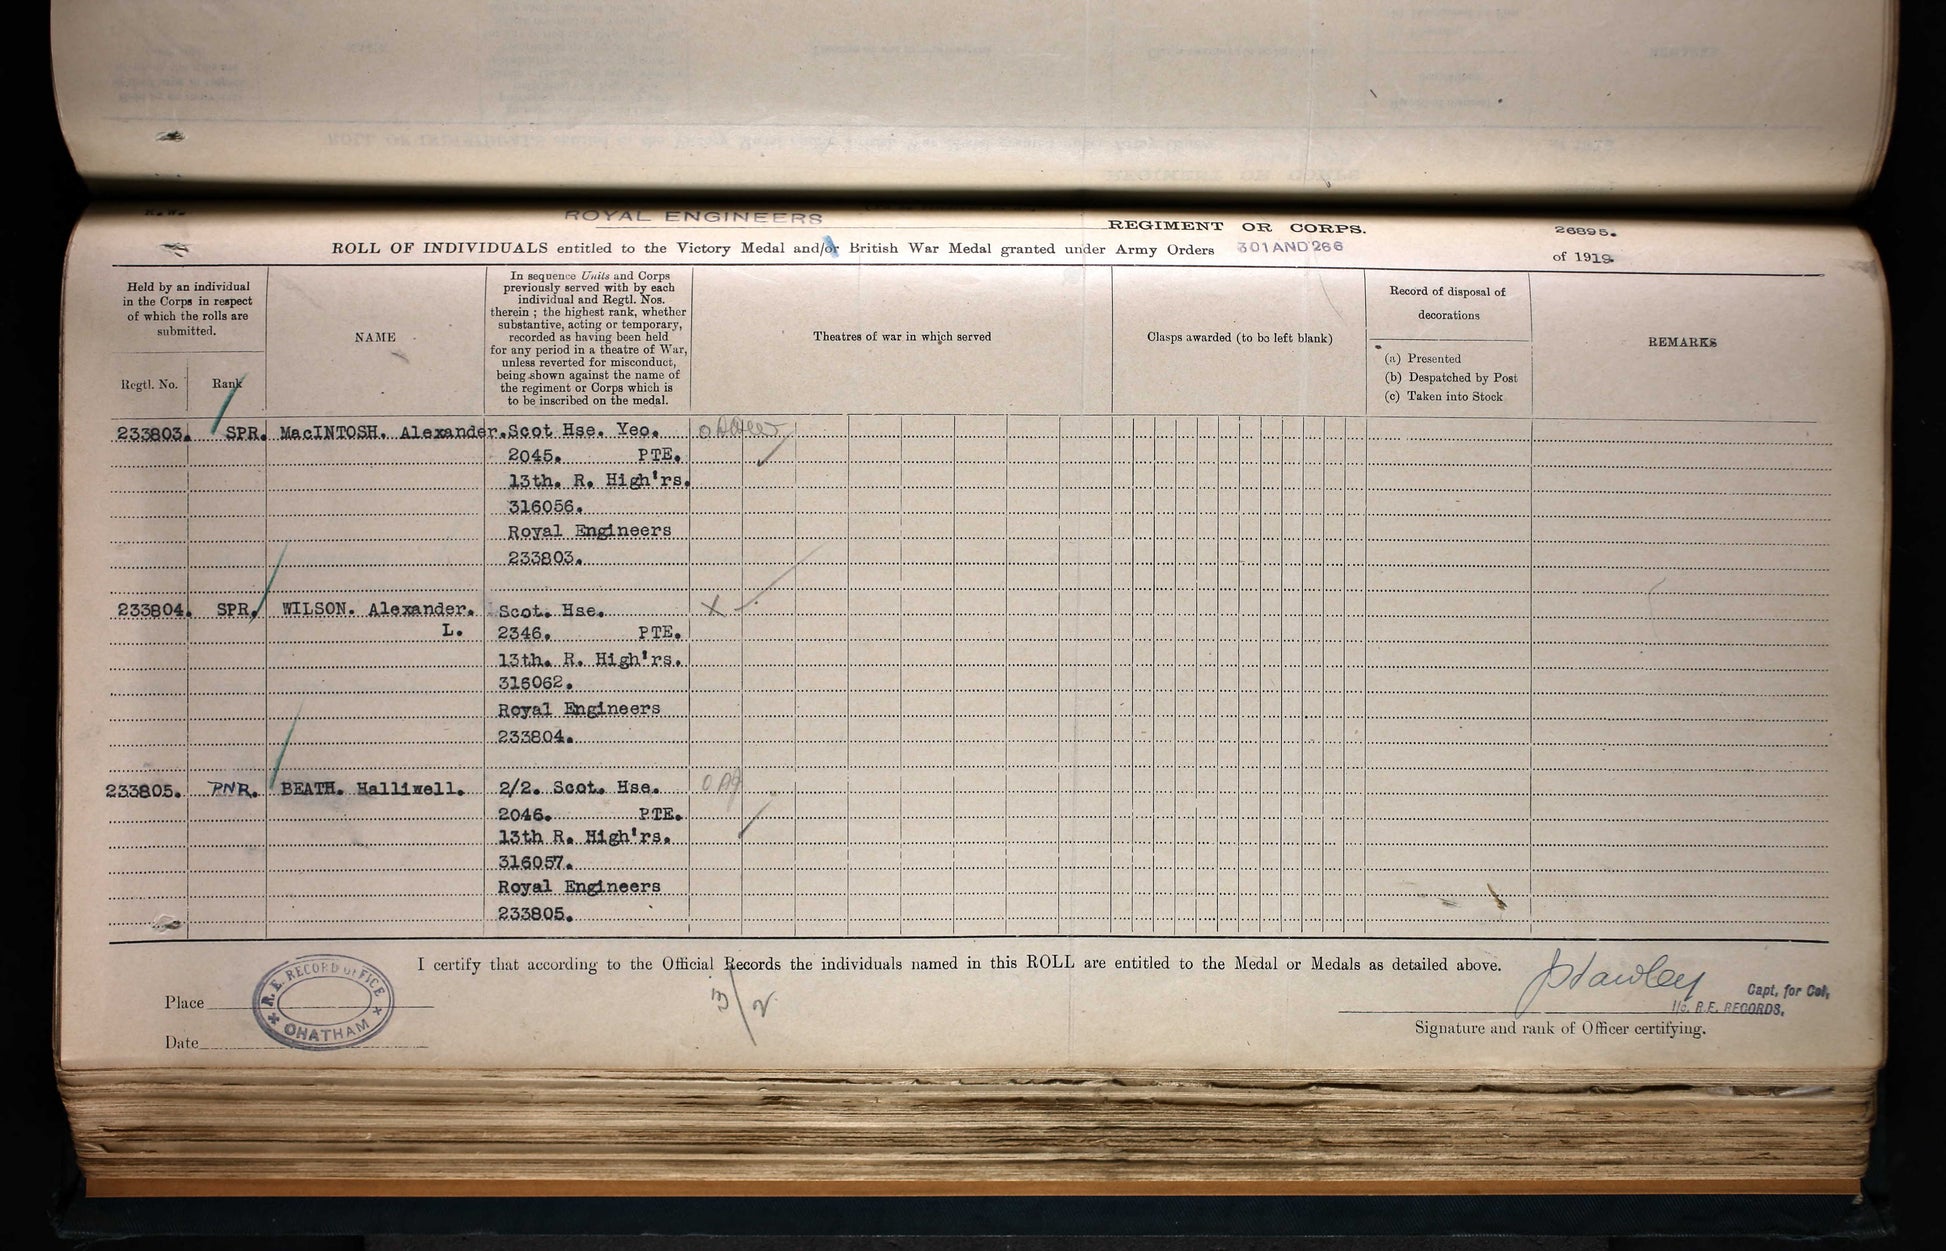 ROYAL ENGINEERS
REGIMENT OR CORPS.
26895.
ROLL OF INDIVIDUALS entitled to the Victory Medal and/or British War Medal granted under Army Orders 301 AND 266
of 1919.
Held by an individual
in the Corps in respect
of which the rolls are
submitted.
Regtl. No.
Rank
NAME
In sequence Units and Corps
previously served with by each
individual and Regtl. Nos.
therein ; the highest rank, whether
substantive, acting or temporary,
recorded as having been held
for any period in a theatre of War,
unless reverted for misconduct,
being shown against the name of
the regiment or Corps which is
to be inscribed on the medal.
Theatres of war in which served
Clasps awarded (to be left blank)
Record of disposal of
decorations
(a) Presented
(b) Despatched by Post
(c) Taken into Stock
REMARKS
233803. SPR. MacINTOSH. Alexander. Scot Hse. Yeo.
2045. PTE.
13th. R. High'rs.
316056.
Royal Engineers
233803.
233804. SPR. WILSON. Alexander. Scot. Hse.
L. 2346. PTE.
13th. R. High'rs.
316062.
Royal Engineers
233804.
233805. PNR. BEATH. Halliwell. 2/2. Scot. Hse.
2046. PTE.
13th R. High'rs.
316057.
Royal Engineers
233805.
I certify that according to the Official Records the individuals named in this ROLL are entitled to the Medal or Medals as detailed above.
Place
R.E. RECORD OFFICE
CHATHAM
Date
Capt. for Col.
I/c. R.E. RECORDS.
Signature and rank of Officer certifying.